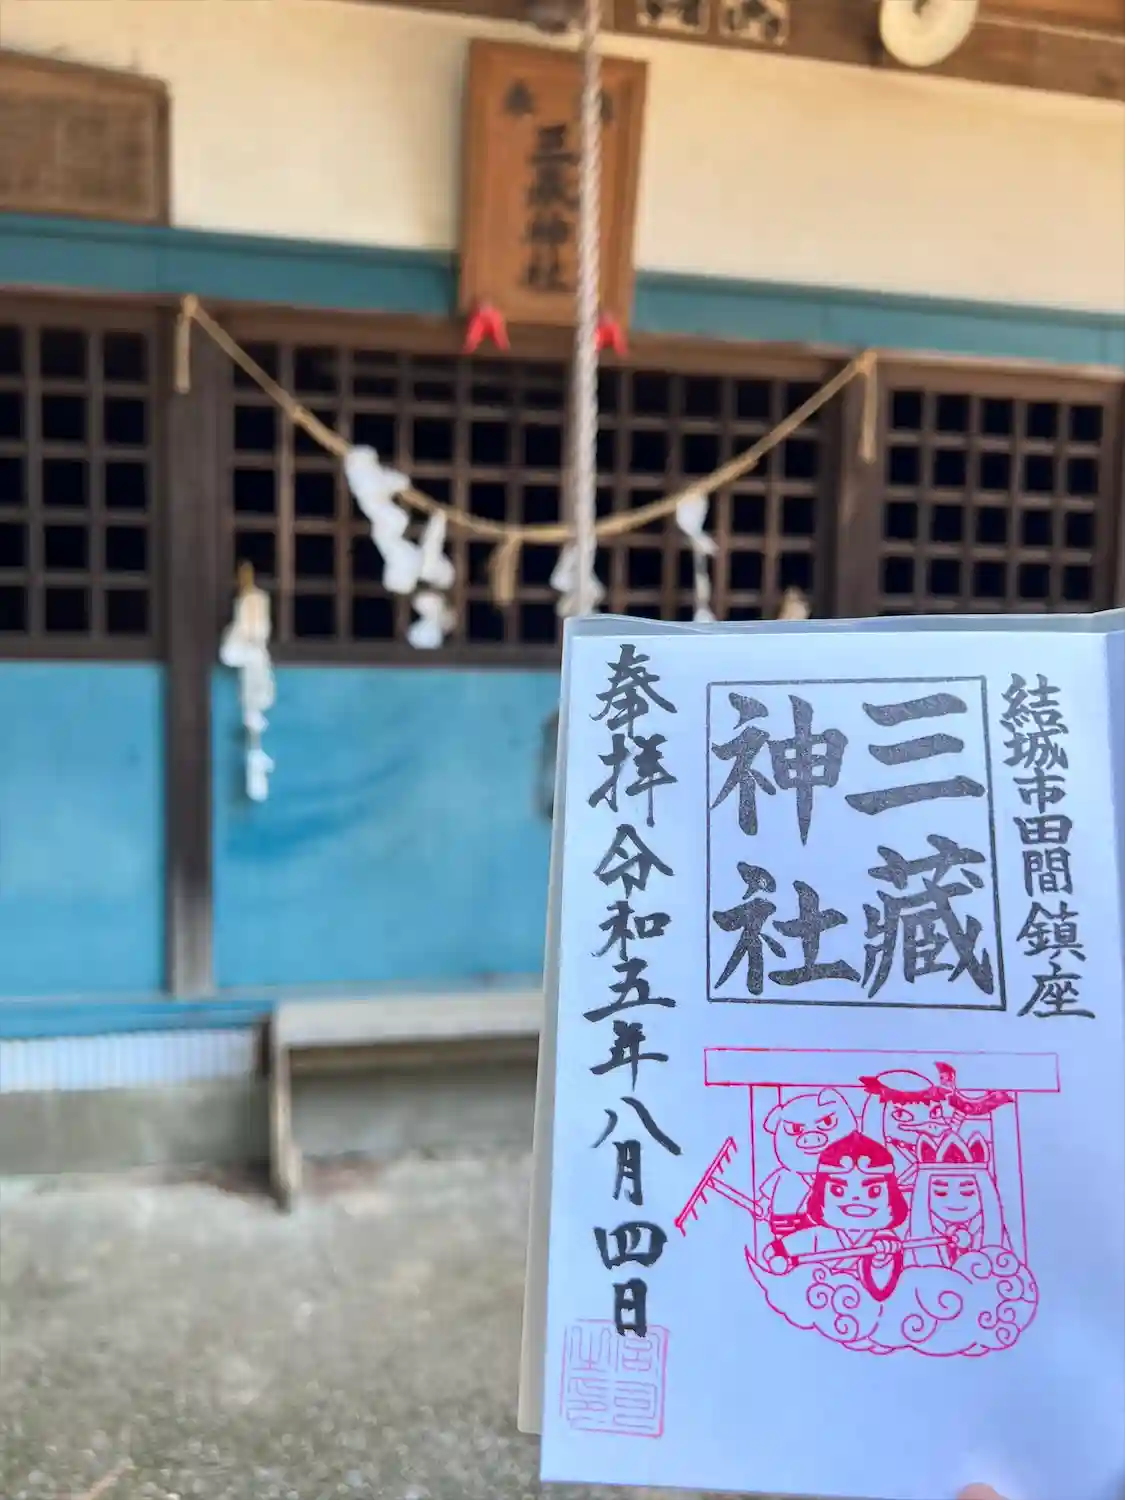 三蔵神社
結城市田間鎮座
三藏
神社
奉拝令和五年八月四日